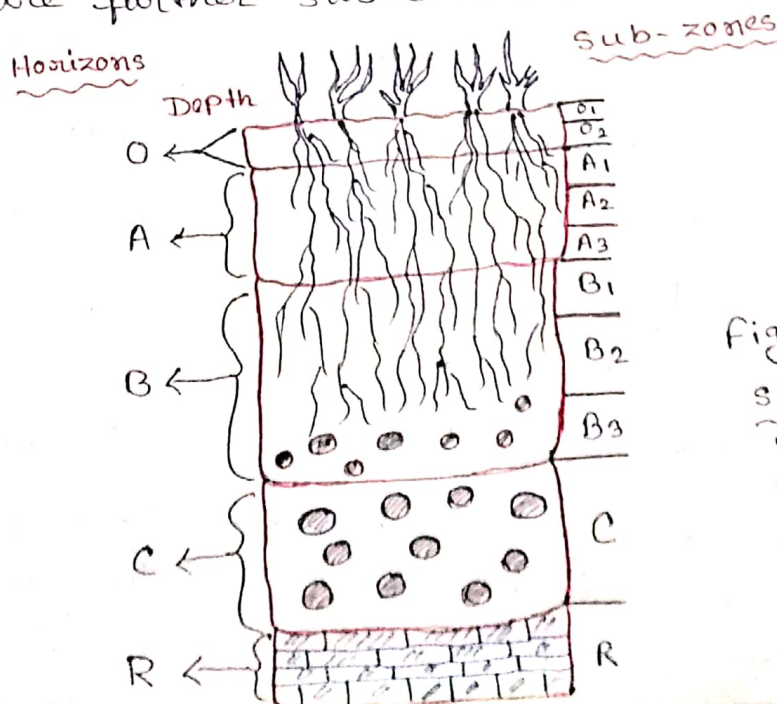 Horizons
Sub-zones
Depth
O
A
B
C
R
O1
O2
A1
A2
A3
B1
B2
B3
C
R